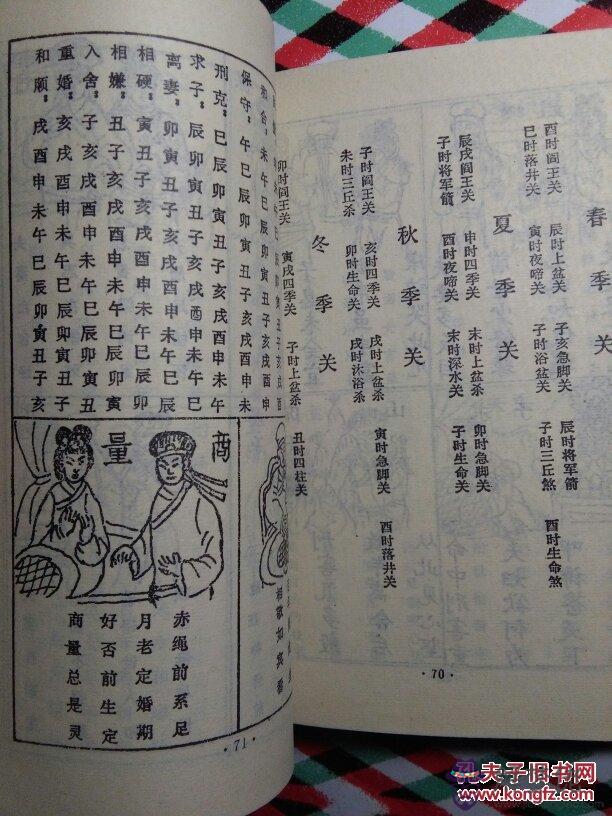 春季关
酉时阎王关 辰时上盆关 子亥急脚关 辰时将军箭 酉时生命煞
巳时落井关 寅时夜啼关 子时浴盆关 子时三丘煞
夏季关
辰戌阎王关 申时四季关 末时上盆煞 卯时急脚关
子时将军箭 酉时夜啼关 末时深水关 子时生命关
秋季关
子时阎王关 亥时四季关 戌时上盆杀 寅时急脚关 酉时落井关
未时三丘杀 卯时生命关 戌时沐浴杀
冬季关
卯时阎王关 寅戌四季关 子时上盆杀 丑时四柱关
·70·
和合：未午巳辰卯寅丑子亥戌酉申
保守：午巳辰卯寅丑子亥戌酉申未
刑克：巳辰卯寅丑子亥戌酉申未午
求子：辰卯寅丑子亥戌酉申未午巳
离妻：卯寅丑子亥戌酉申未午巳辰
相硬：寅丑子亥戌酉申未午巳辰卯
相嫌：丑子亥戌酉申未午巳辰卯寅
入舍：子亥戌酉申未午巳辰卯寅丑
重婚：亥戌酉申未午巳辰卯寅丑子
和顺：戌酉申未午巳辰卯寅丑子亥
相敬如宾看
商量
赤绳前系足
月老定婚期
好否前生定
商量总是灵
·71·
孔夫子旧书网
www.kongfz.com